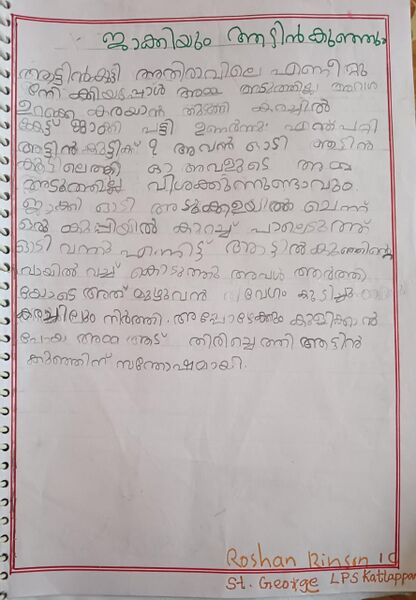 ജാക്കിയും ആട്ടിൻകുഞ്ഞും
ആട്ടിൻകുട്ടി അതിരാവിലെ എണീറ്റു
നോക്കിയപ്പോൾ അമ്മ അടുത്തില്ല അവൾ
ഉറക്കെ കരയാൻ തുടങ്ങി കരച്ചിൽ
കേട്ട് ജാക്കി പട്ടി ഉണർന്നു എന്ത് പറ്റി
ആട്ടിൻ കുട്ടിക്ക് ? അവൻ ഓടി ആടിൻ
കൂട്ടിലെത്തി ഓ അവളുടെ അമ്മ
അടുത്തില്ല വിശക്കുന്നുണ്ടാവും.
ജാക്കി ഓടി അടുക്കളയിൽ ചെന്ന്
ഒരു കുപ്പിയിൽ കുറച്ച് പാലെടുത്ത്
ഓടി വന്നു എന്നിട്ട് ആട്ടിൻ കുഞ്ഞിന്റെ
വായിൽ വച്ച് കൊടുത്തു അവൾ ആർത്തി
യോടെ അത് മുഴുവൻ വേഗം കുടിച്ചു
കരച്ചിലും നിർത്തി. അപ്പോഴേക്കും കുളിക്കാൻ
പോയ അമ്മ ആട് തിരിച്ചെത്തി ആട്ടിൻ
കുഞ്ഞിന് സന്തോഷമായി.
Roshan Rinson 1 C
St. George LPS Kattappan